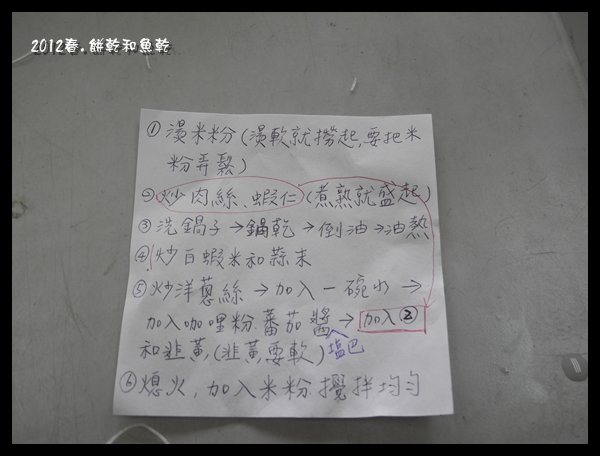 2012春.餅乾和魚乾
①燙米粉(燙軟就撈起,要把米
粉弄鬆)
②炒肉絲、蝦仁(煮熟就盛起)
③洗鍋子→鍋乾→倒油→油熱
④炒白蝦米和蒜末
⑤炒洋蔥絲→加入一碗水→
加入咖哩粉蕃茄醬→加入②
和韭黃,(韭黃要軟)鹽巴
⑥熄火,加入米粉攪拌均勻